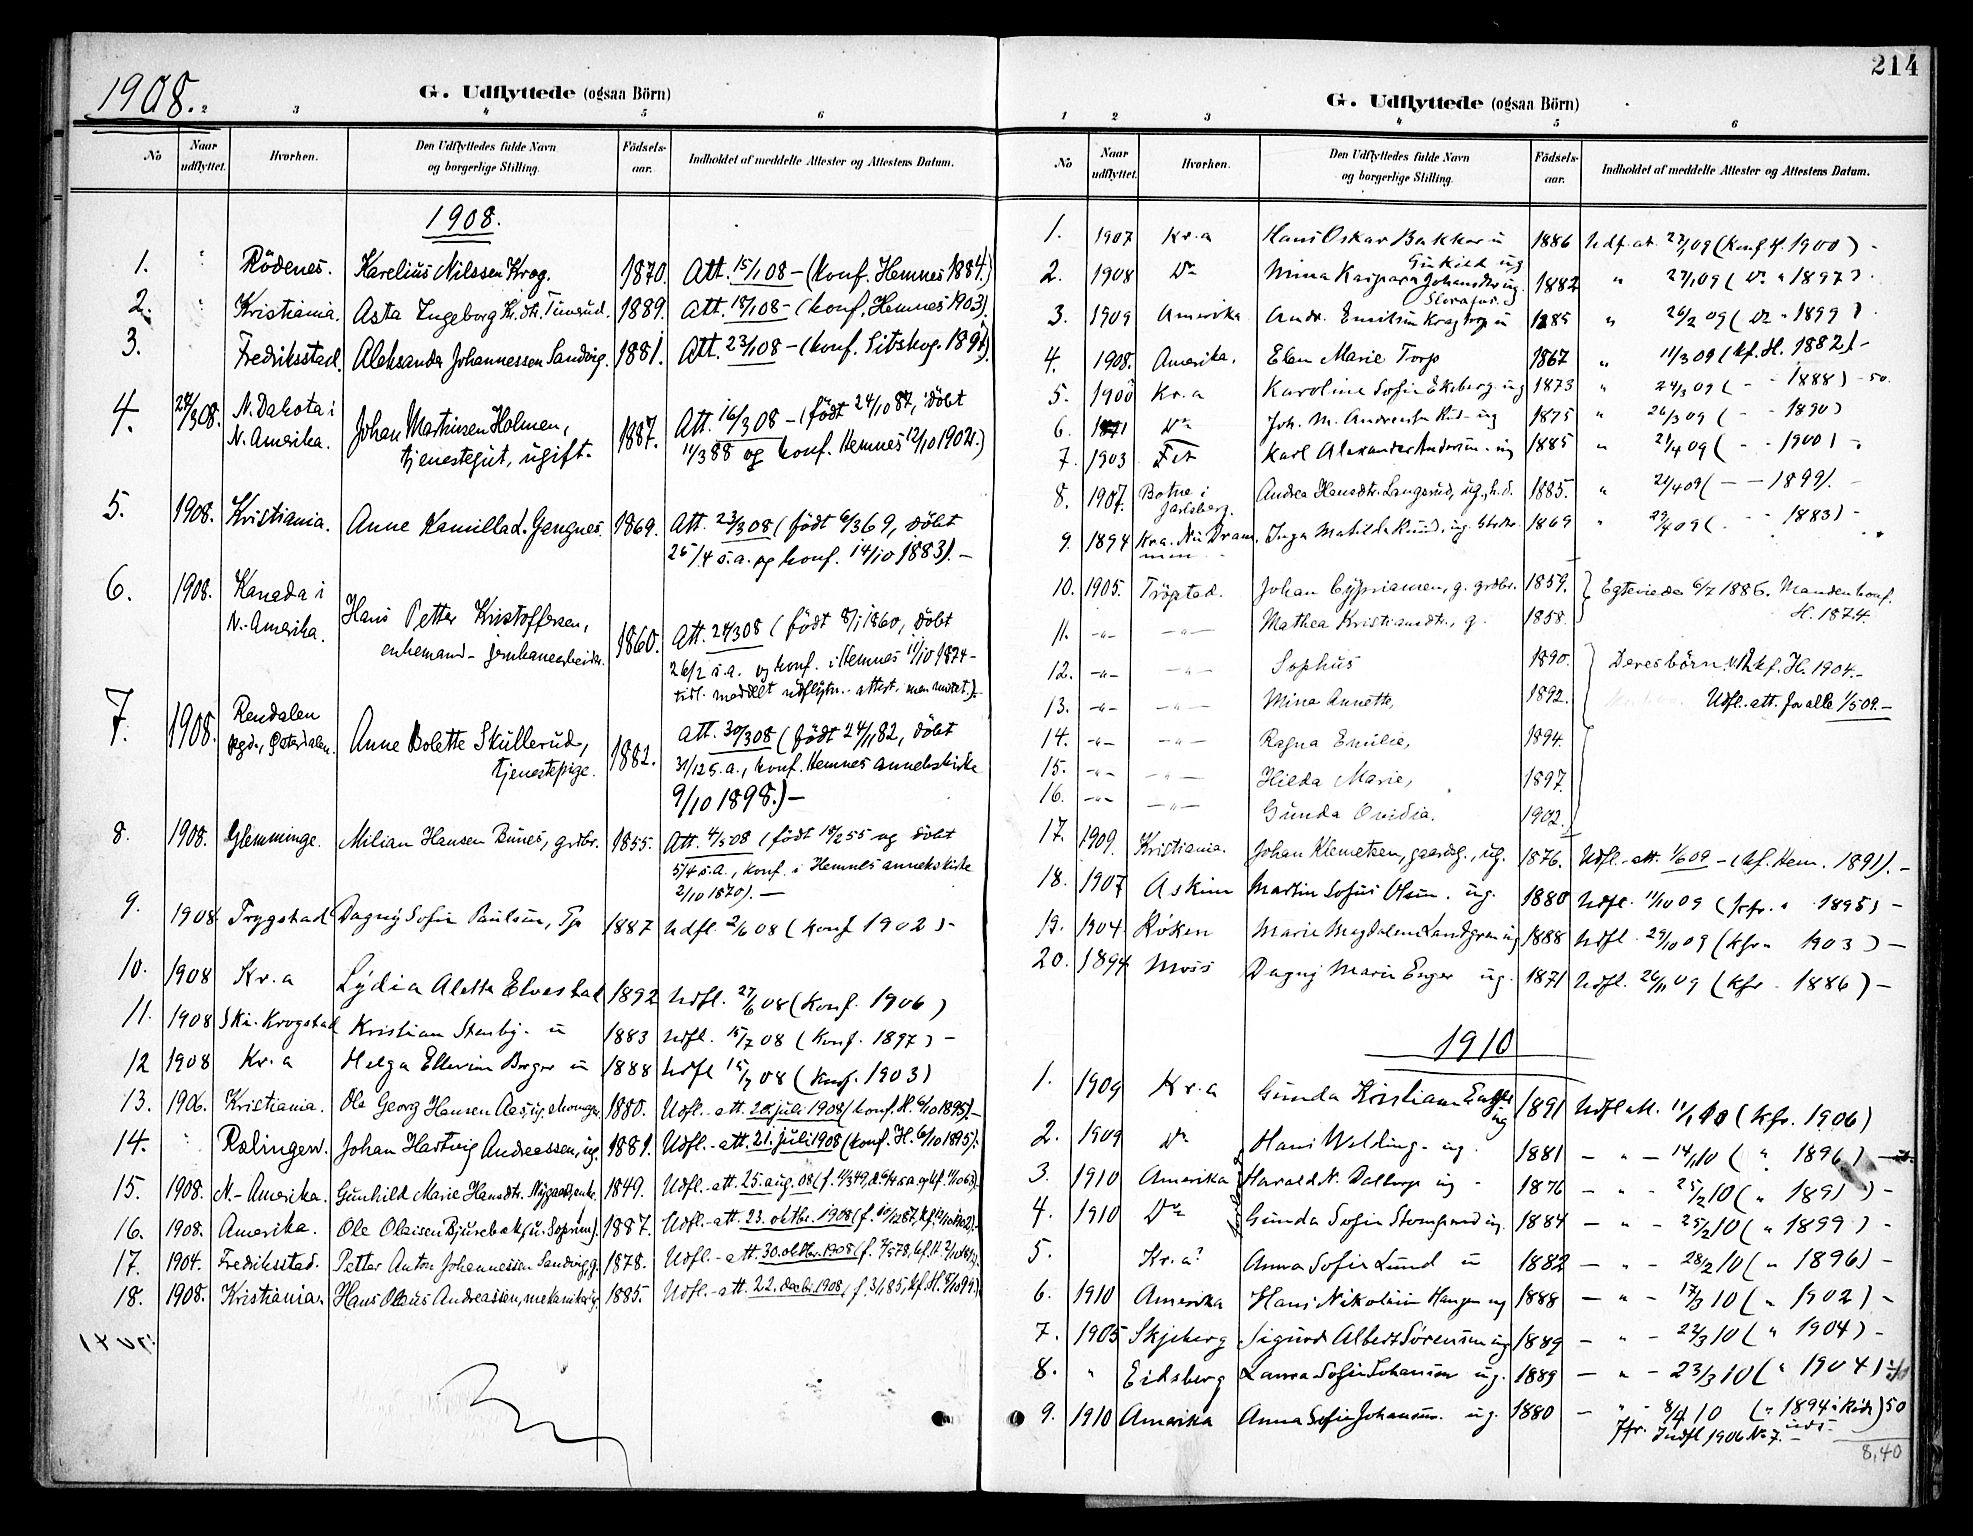 1908.
G. Udflyttede (ogsaa Börn)
2 3 4 5 6
No Naar udflyttet. Hvorhen. Den Udflyttedes fulde Navn og borgerlige Stilling. Födsels-aar. Indholdet af meddelte Attester og Attestens Datum.
1908.
1. " Rödenes. Karelius Nilssen Krog. 1870. Att. 15/1 08 - (konf. Hemnes 1884.)
2. " Kristiania. Asta Ingeborg Kr. dtr. 1889. Att. 18/1 08 - (konf. Hemnes 1903).
3. Fredriksstad. Aleksander Johannessen Sandvig. 1881. Att. 23/1 08 - (konf. Sitskog.
4. 24/3 08. N. Dakota i
N. Amerika. Johan Martinsen Holmen, 1887. Att. 16/3 08 - (født 24/10 87, döbt
tjenestegut, ugift. 11/3 88 og konf. Hemnes 12/10 1902.)
5. 1908. Kristiania. Anne Kamilla d. Gangnes. 1869. Att. 23/3 08 (født 6/3 69, döbt
25/4 s.a. og konf. 14/10 1883). -
6. 1908. Kanada i
N.-Amerika. Hans Petter Kristoffersen, 1860. Att. 24/3 08 (født 8/1 1860, döbt
enkemand - jernbanearbeider. 26/2 s.a. og konf. i Hemnes 11/10 1874 -
tidl. meddelt udflytn. attest. men mistet.). -
7. 1908. Rendalen
pgd., Østerdalen. Anne Bolette Skullerud, 1882. Att. 30/3 08 (født 24/11 82, döbt
tjenestepige. 31/12 s.a., konf. Hemnes annekskirke
9/10 1898.) -
8. 1908. Glemminge. Milian Hansen Bunes, grdbr. 1855. Att. 4/5 08 (født 18/2 55 og döbt
5/4 s.a., konf. i Hemnes annekskirke
2/10 1870). -
9. 1908 Trygstad Dagny Sofie Paulsen, Tp 1887 Udfl. 2/6 08 (konf 1902) -
10. 1908 Kr.a Lydia Aletta Elvestad 1892 Udfl. 27/6 08 (konf. 1906)
11. 1908 Ski-Krogstad Kristian Stenby. u 1883 Udfl. 15/7 08 (konf. 1897) -
12 1908 Kr.a Helga Ellevine Berger u 1888 Udfl 15/7 08 (konf. 1903)
13. 1906. Kristiania. Ole Georg Hansen 1880. Udfl. - att. 20 juli 1908 (konf. H. 6/10 1895) -
14. " Johan Hartvig Andreassen, ug. 1881. Udfl. - att. 21. juli 1908 (konf. H. 6/10 1895).
15. 1908. N.-Amerika. Gunhild Marie Hansdtr. Nygaard, enke. 1849. Udfl. - att. 25. aug. 08
16. 1908. Amerika. Ole Olaisen Bjurebak 1887. Udfl. - att. 23. oktbr. 1908
17. 1904. Fredriksstad. Petter Anton Johannessen Sandvig, g. 1878. Udfl. - att. 30. oktbr. 1908
18. 1908. Kristiania. Hans Olaus Andreassen, mekaniker, ug. 1885. Udfl. - att. 22. decbr. 1908
214
G. Udflyttede (ogsaa Börn)
1 2 3 4 5 6
No Naar udflyttet. Hvorhen. Den Udflyttedes fulde Navn og borgerlige Stilling. Födsels-aar. Indholdet af meddelte Attester og Attestens Datum.
1. 1907 Kr.a Hans Oskar Bakker u 1886 Udf. at. (konf H. 1900) -
2. 1908 Do Mina Kaspara Johansdtr ug. 1882 " 27/1 09 (Do " 1897)
3. 1909 Amerika Andr. Emilsen u 1885 " 26/2 09 (Do " 1899)
4. 1908. Amerika. Elen Marie Torp 1867 " 11/3 09 (kf. H. 1882) -
5. 1900 Kr.a Karoline Sofie Ekeberg ug 1873 " 24/3 09 ( - - 1888) - 50.
6. Do Joh. M. ug 1875 " 26/3 09 ( - - 1890)
7. 1903 Fet Karl Alexander Andersen. ug 1885 " 21/4 09 ( - - 1900) -
8. 1907. Botne i
Jarlsberg. Andrea Hansdtr. Langerud, ug., h.d. 1885. " 21/4 09 ( - - 1899). -
9. 1894 Kra. Nu Dram-
men Inga Matilde Rund, ug. 1869 " 29/4 09 ( - - 1883) -
10. 1905. Trögstad. Johan Cyprianen, g. grdbr. 1859. Egteviede 6/7 1886. Manden konf.
11. -"- -"- Mathea Kristiansdtr., g. 1858. H. 1874.
12. -"- -"- Sophus 1890. Deres börn. kf. H. 1904. -
13. -"- -"- Mina Annette, 1892. Udfl. att. for alle 1/5 09. -
14. -"- -"- Ragna Emilie, 1894.
15. -"- -"- Hilda Marie, 1897.
16. -"- -"- Gunda Ovidia. 1902.
17. 1909. Kristiania. Johan Klemetsen, gaardsg., ug. 1876. Udfl. - att. 1/6 09 - (kf. Hem. 1891). -
18. 1907 Askim Martin Sofus Olsen. ug. 1880 Udfl. 11/10 09 (kfr. " 1895) -
19. 1904. Röken Marie Magdalene Landgren ug 1888 Udfl. 29/10 09 (kfr " 1903) -
20. 1894 Moss Dagny Marie Enger ug. 1871 Udfl. 26/11 09 (kfr - 1886) -
1910
1. 1909 Kr.a Gunda Kristiane ug 1891 Udfl att. 11/1 10 (kfr. 1906)
2. 1909 Do Hans Welding - ug. 1881 - " - 14/1 10 ( " 1896) -
3. 1910 Amerika Harald N. Daltorp ug - 1876 - " - 25/2 10 ( " 1891) -
4. 1910 Do Gunda Sofie ug. 1884 - " - 25/2 10 ( " 1899) -
5. Kr.a? Anna Sofie Lund u 1882 - " - 28/2 10 ( " 1896) -
6. 1910 Amerika Hans Nikolai Hangen ug 1888 - " - 17/3 10 ( " 1902) -
7. 1905 Skjeberg Sigurd Albert Sörensen ug 1889 - " - 22/3 10 ( " 1904) -
8. " Eidsberg Laura Sofie Johansen ug. 1889 - " - 23/3 10 ( " 1904)
9. 1910 Amerika Anna Sofie Johansen. ug. 1880 - " - 8/4 10 ( " 1894 i ) 50
Jfr. Indfl 1906 No 7. -
8,40